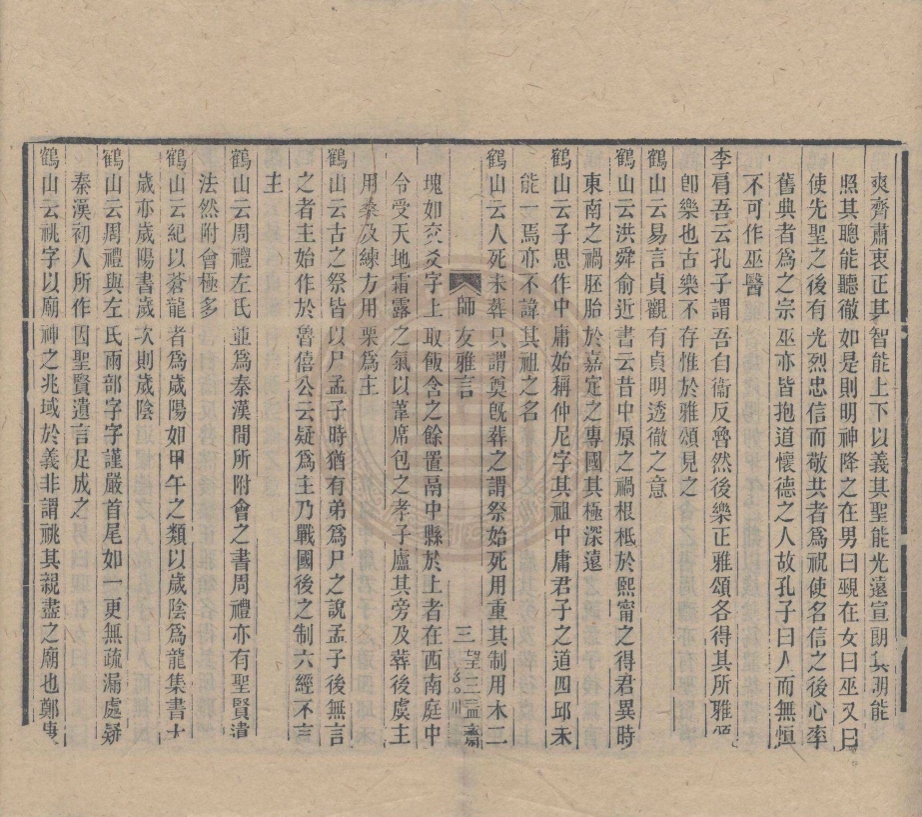 爽齊肅衷正其智能上下以義其聖能光遠宣朗其明能
照其聰能聽徹如是則明神降之在男曰覡在女曰巫又曰
使先聖之後有光烈忠信而敬共者爲祝使名信之後心率
舊典者爲之宗巫亦皆抱道懷德之人故孔子曰人而無恒
不可作巫醫
李肩吾云孔子謂吾自衞反魯然後樂正雅頌各得其所雅頌
卽樂也古樂不存惟於雅頌見之
鶴山云易言貞觀有貞明透徹之意
鶴山云洪舜俞近書云昔中原之禍根柢於熙甯之得君異時
東南之禍胚胎於嘉定之專國其極深遠
鶴山云子思作中庸始稱仲尼字其祖中庸君子之道四邱未
能一焉亦不諱其祖之名
鶴山云人死未葬只謂奠旣葬之謂祭始死用重其制用木二
師友雅言
三
望三益齋
塊如交爻字上取飯含之餘置鬲中縣於上者在西南庭中
令受天地霜露之氣以葦席包之孝子廬其旁及葬後虞主
用桑及練方用栗爲主
鶴山云古之祭皆以尸孟子時猶有弟爲尸之說孟子後無言
之者主始作於魯僖公云疑爲主乃戰國後之制六經不言
主
鶴山云周禮左氏並爲秦漢間所附會之書周禮亦有聖賢遺
法然附會極多
鶴山云紀以蒼龍者爲歲陽如甲午之類以歲陰爲龍集書太
歲亦歲陽書歲次則歲陰
鶴山云周禮與左氏兩部字字謹嚴首尾如一更無疏漏處疑
秦漢初人所作因聖賢遺言足成之
鶴山云祧字以廟神之兆域於義非謂祧其親盡之廟也鄭康